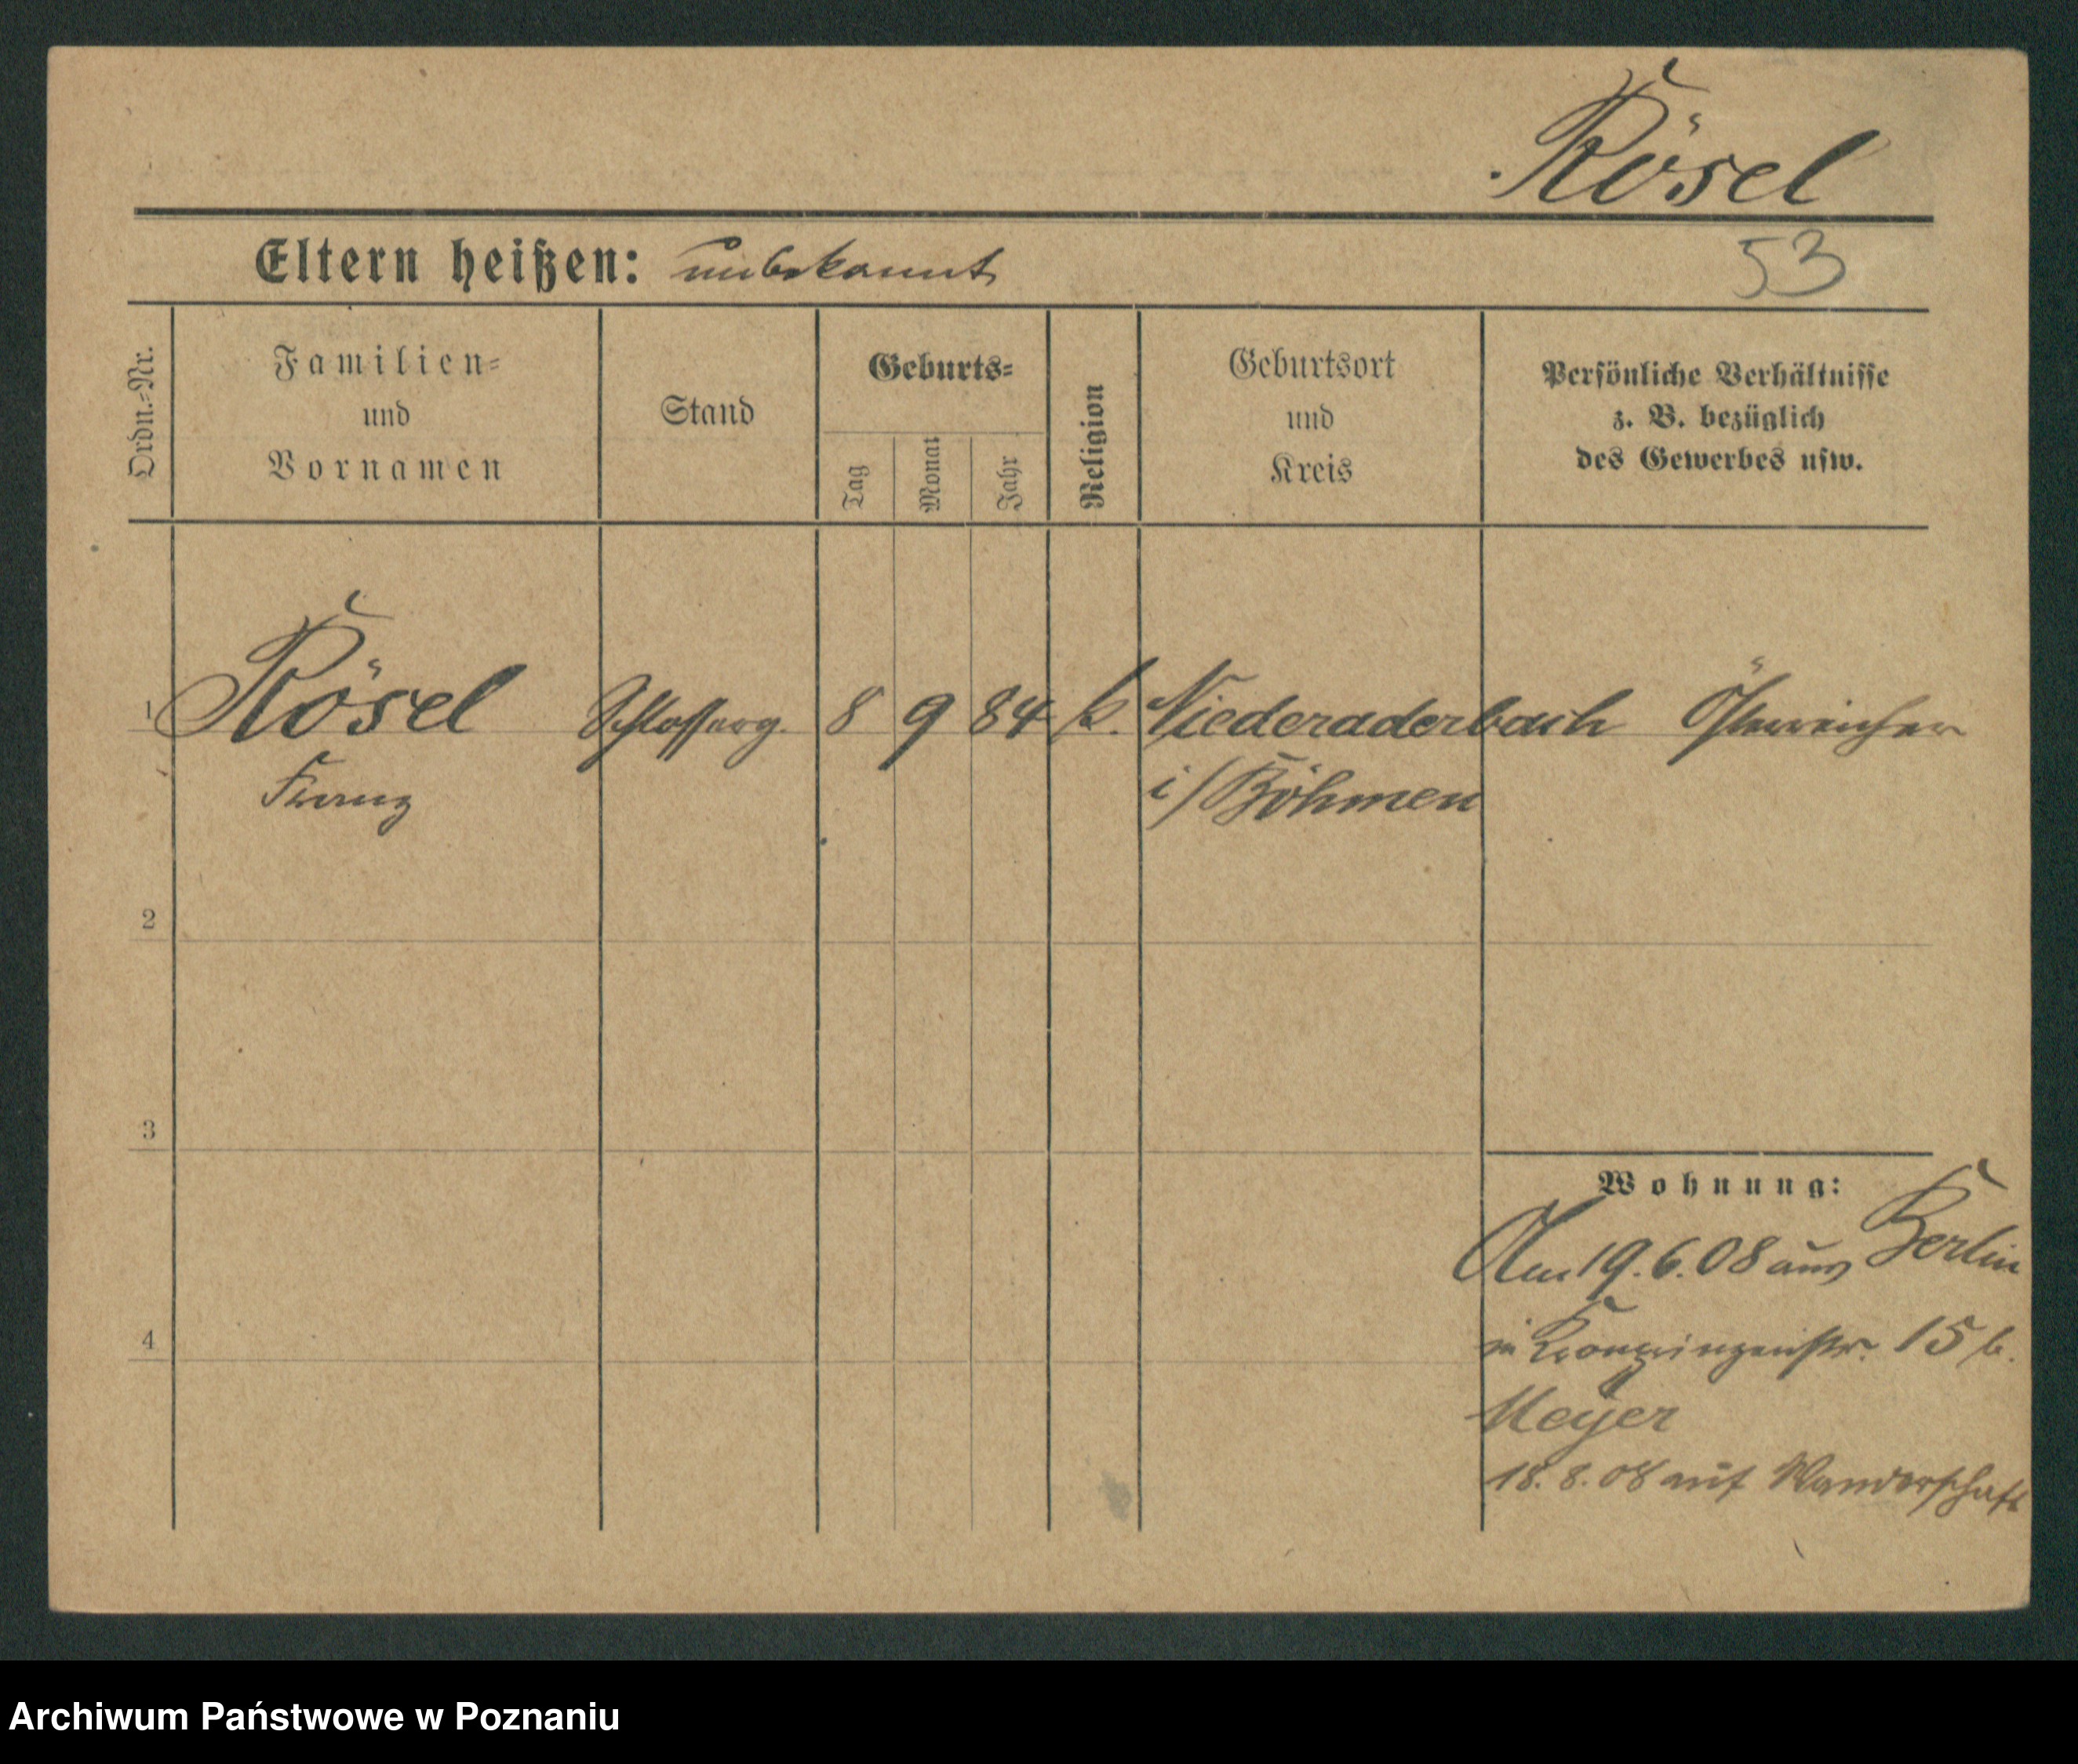 Rösel
Eltern heißen: unbekannt
53
Ordn.-Nr.
Familien-
und
Vornamen
Stand
Geburts-
Tag
Monat
Jahr
Religion
Geburtsort
und
Kreis
Persönliche Verhältnisse
z. B. bezüglich
des Gewerbes usw.
1 Rösel Schlosserg. 8 9 84 k. Niederaderbach Österreicher
Franz i/Böhmen
2
3
4
Wohnung:
Am 19.6.08 aus Berlin
in Kronprinzenstr. 15 b.
Meyer
18.8.08 auf Wanderschaft
Archiwum Państwowe w Poznaniu